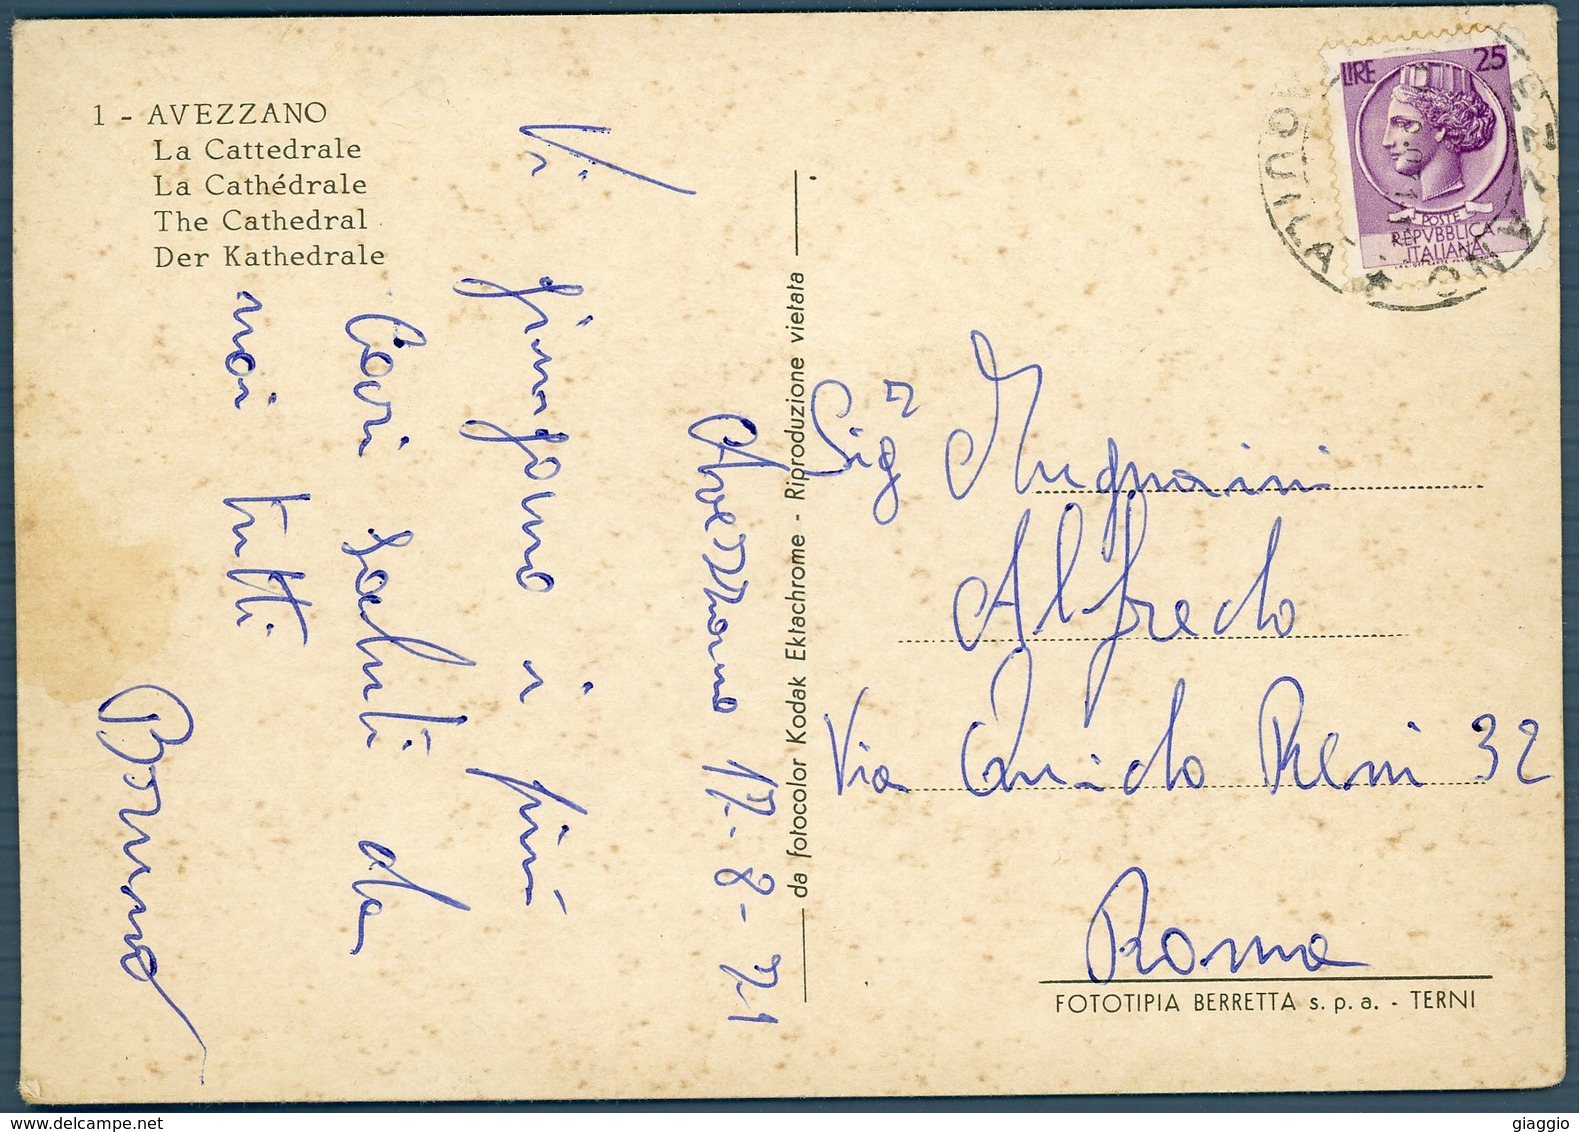 1 - AVEZZANO
La Cattedrale
La Cathédrale
The Cathedral
Der Kathedrale
Avezzano 17-8-71
Vi
giungano i più
cari saluti da
noi tutti
Bruno
da fotocolor Kodak Ektachrome - Riproduzione vietata
LIRE 25
POSTE
REPVBBLICA
ITALIANA
AVEZZANO
L'AQUILA
Sigr Mugnaini
Alfredo
Via Guido Reni 32
Roma
FOTOTIPIA BERRETTA s.p.a. - TERNI
giaggio